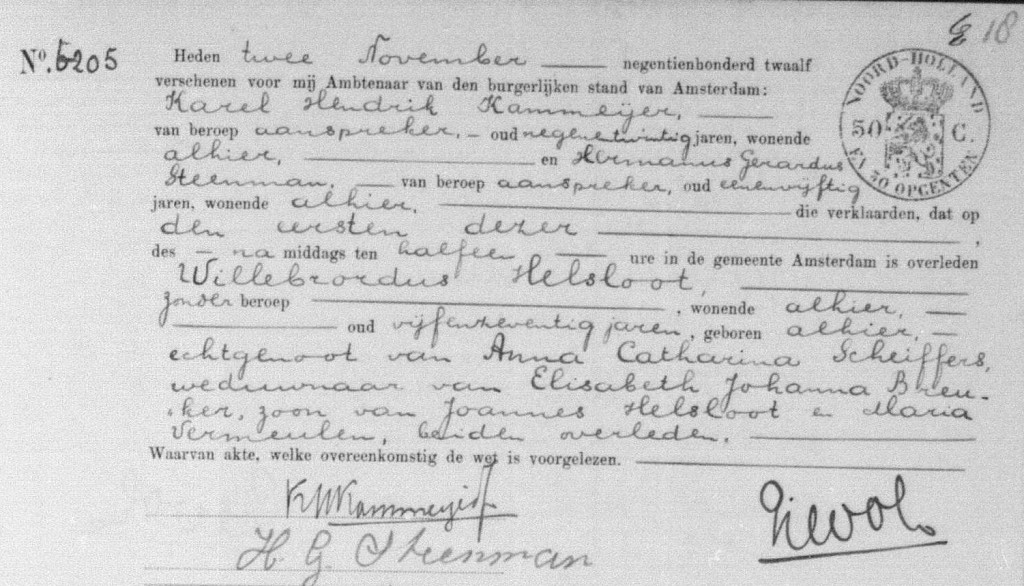 18
No. 5205
Heden twee November negentienhonderd twaalf
verschenen voor mij Ambtenaar van den burgerlijken stand van Amsterdam:
Karel Hendrik Kammeijer,
van beroep aanspreker, - oud negenentwintig jaren, wonende
alhier, en Hermanus Gerardus
Steenman, van beroep aanspreker, oud eenenvijftig
jaren, wonende alhier, die verklaarden, dat op
den eersten dezer,
des - na middags ten halfeen ure in de gemeente Amsterdam is overleden
Willebrordus Helsloot,
zonder beroep, wonende alhier,
oud vijfenzeventig jaren, geboren alhier,
echtgenoot van Anna Catharina Scheiffers,
weduwnaar van Elisabeth Johanna Breu-
ker, zoon van Joannes Helsloot en Maria
Vermeulen, beiden overleden.
Waarvan akte, welke overeenkomstig de wet is voorgelezen.
KHKammeijer
H. G. Steenman
NOORD-HOLLAND
50 C.
EN 30 OPCENTEN